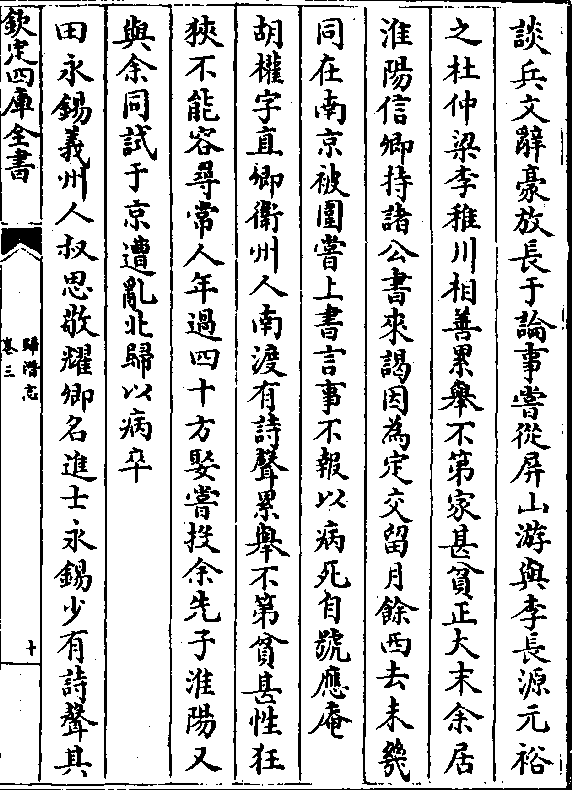 談兵文辭豪放長于論事嘗從屏山游與李長源元裕
之杜仲梁李稚川相善累舉不第家甚貧正大末余居
淮陽信卿持諸公書來謁因為定交留月餘西去未幾
同在南京被圍嘗上書言事不報以病死自號應庵
胡權字直卿衛州人南渡有詩聲累舉不第貧甚性狂
狹不能容尋常人年過四十方娶嘗投余先子淮陽又
與余同試于京遭亂北歸以病卒
田永錫義州人叔思敬耀卿名進士永錫少有詩聲其
欽定四庫全書
歸潛志
卷三
十